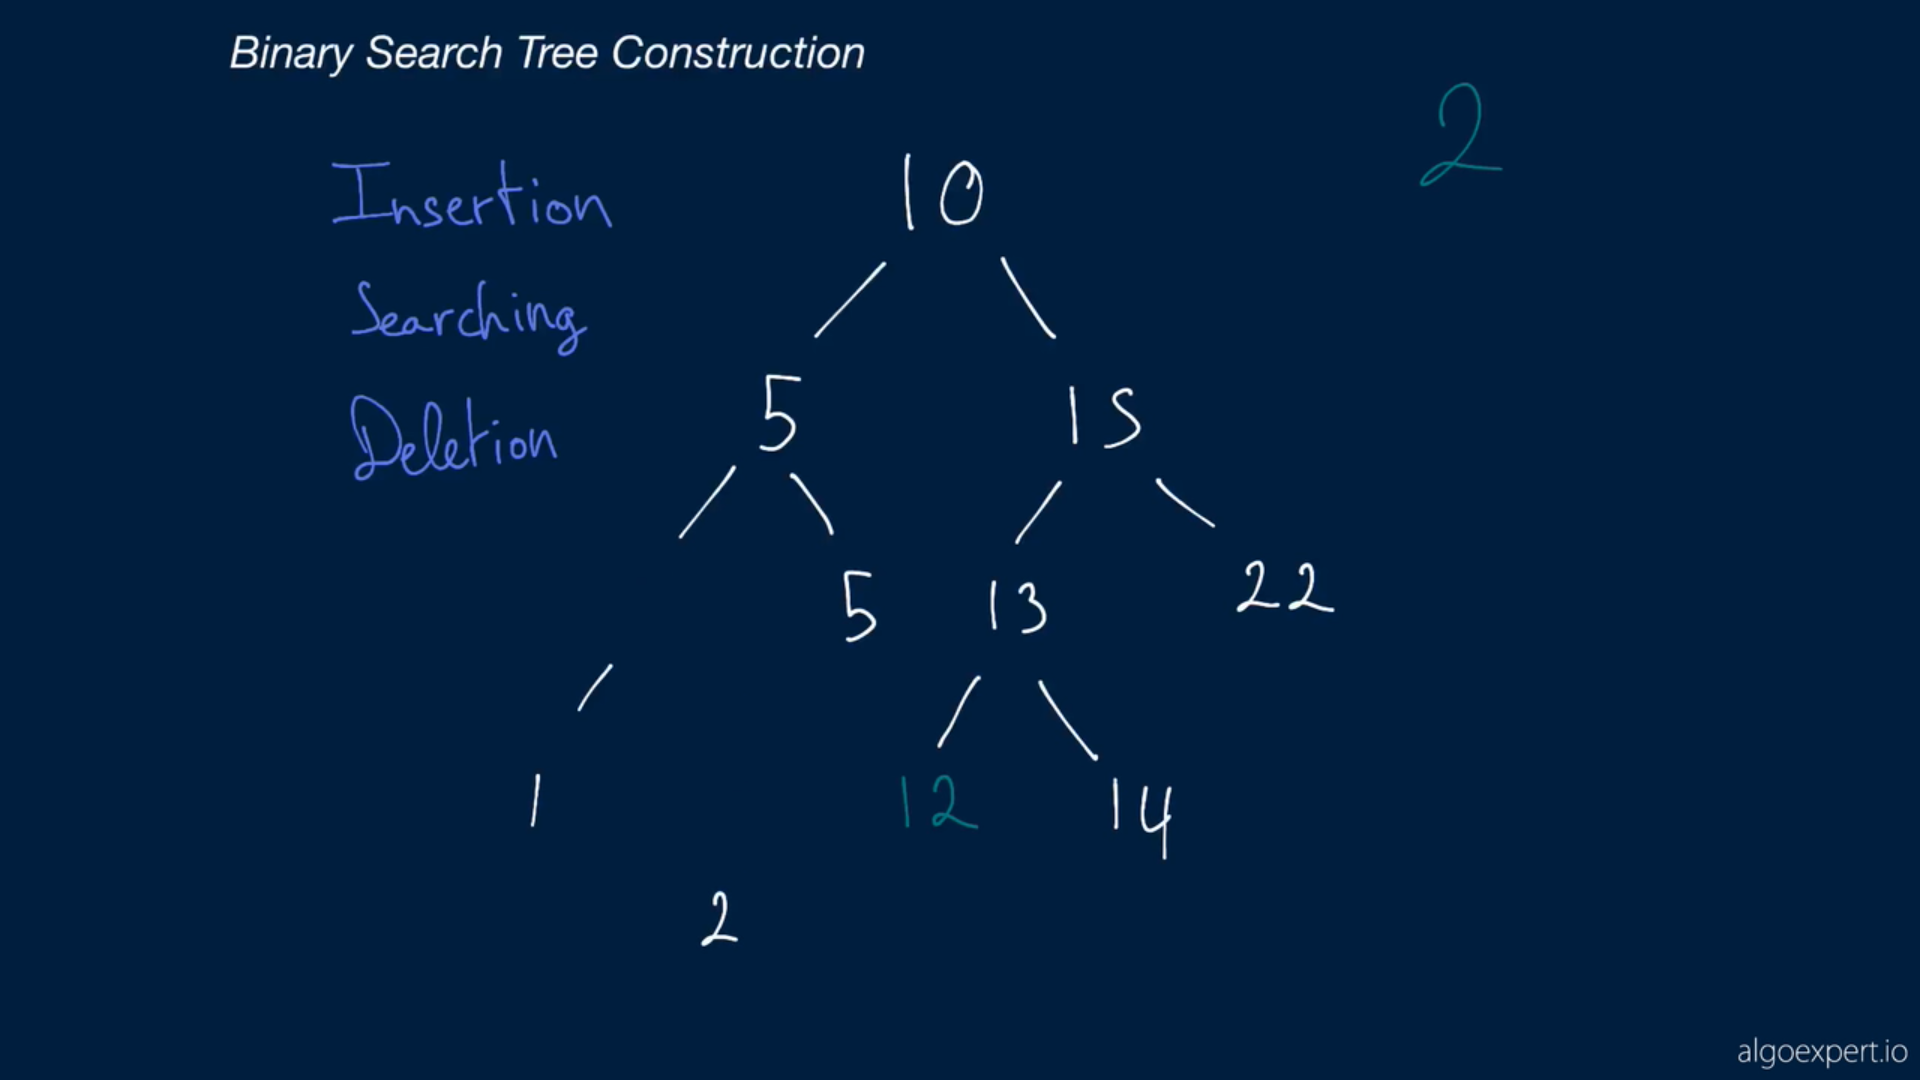 Binary Search Tree Construction
2
Insertion
10
Searching
5 15
Deletion
5 13 22
1 12 14
2
algoexpert.io